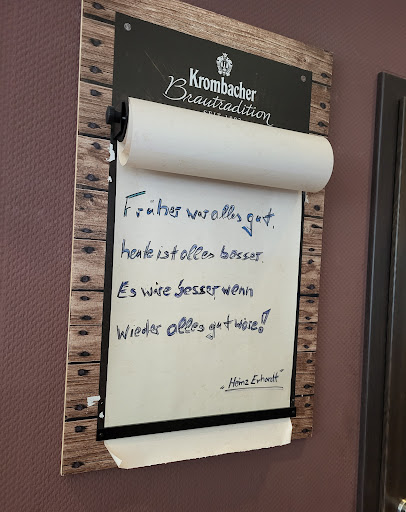 Krombacher
Brautradition
Früher war alles gut,
heute ist alles besser.
Es wäre besser, wenn
wieder alles gut wäre!!
"Heinz Erhardt"